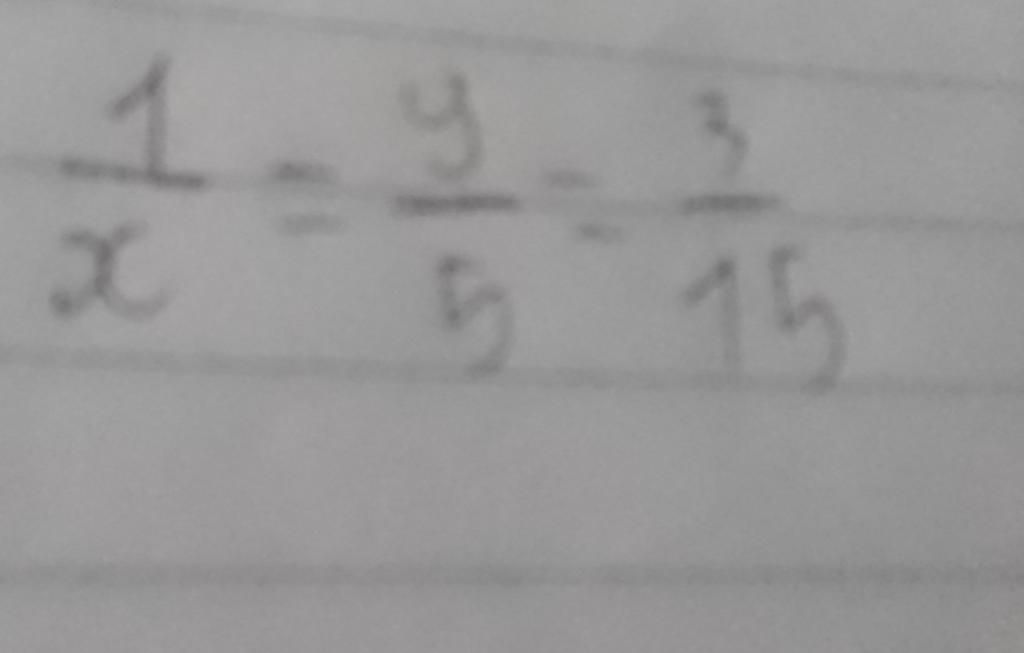 1/x = y/5 = 3/15